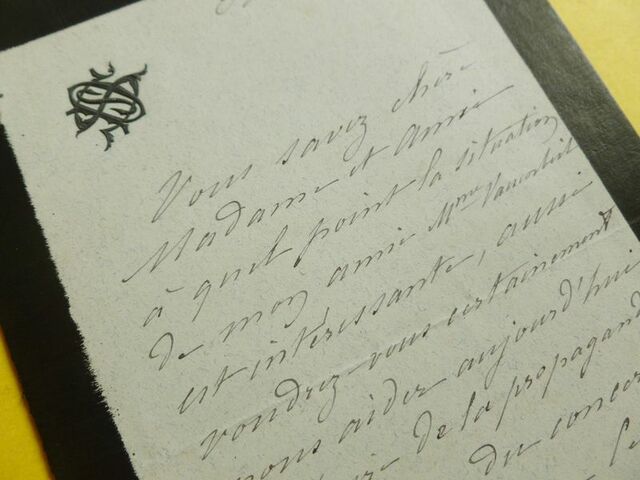 Vous savez chère
Madame et amie
à quel point la situation
de mon amie Mme
est intéressante, aussi
voudrez vous certainement
nous aider aujourd'hui
de la propagand
du concer